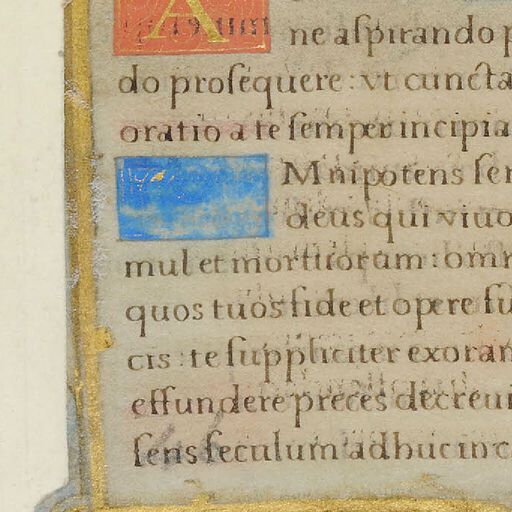 A ne aſpirando p
do proſequere : vt cuncta
oratio a te ſemper incipia
Mnipotens ſem
deus qui viuo
mul et mortuorum : omn
quos tuos fide et opere fu
cis : te ſuppliciter exoram
effundere preces decreui
ſens ſeculum adhuc in c